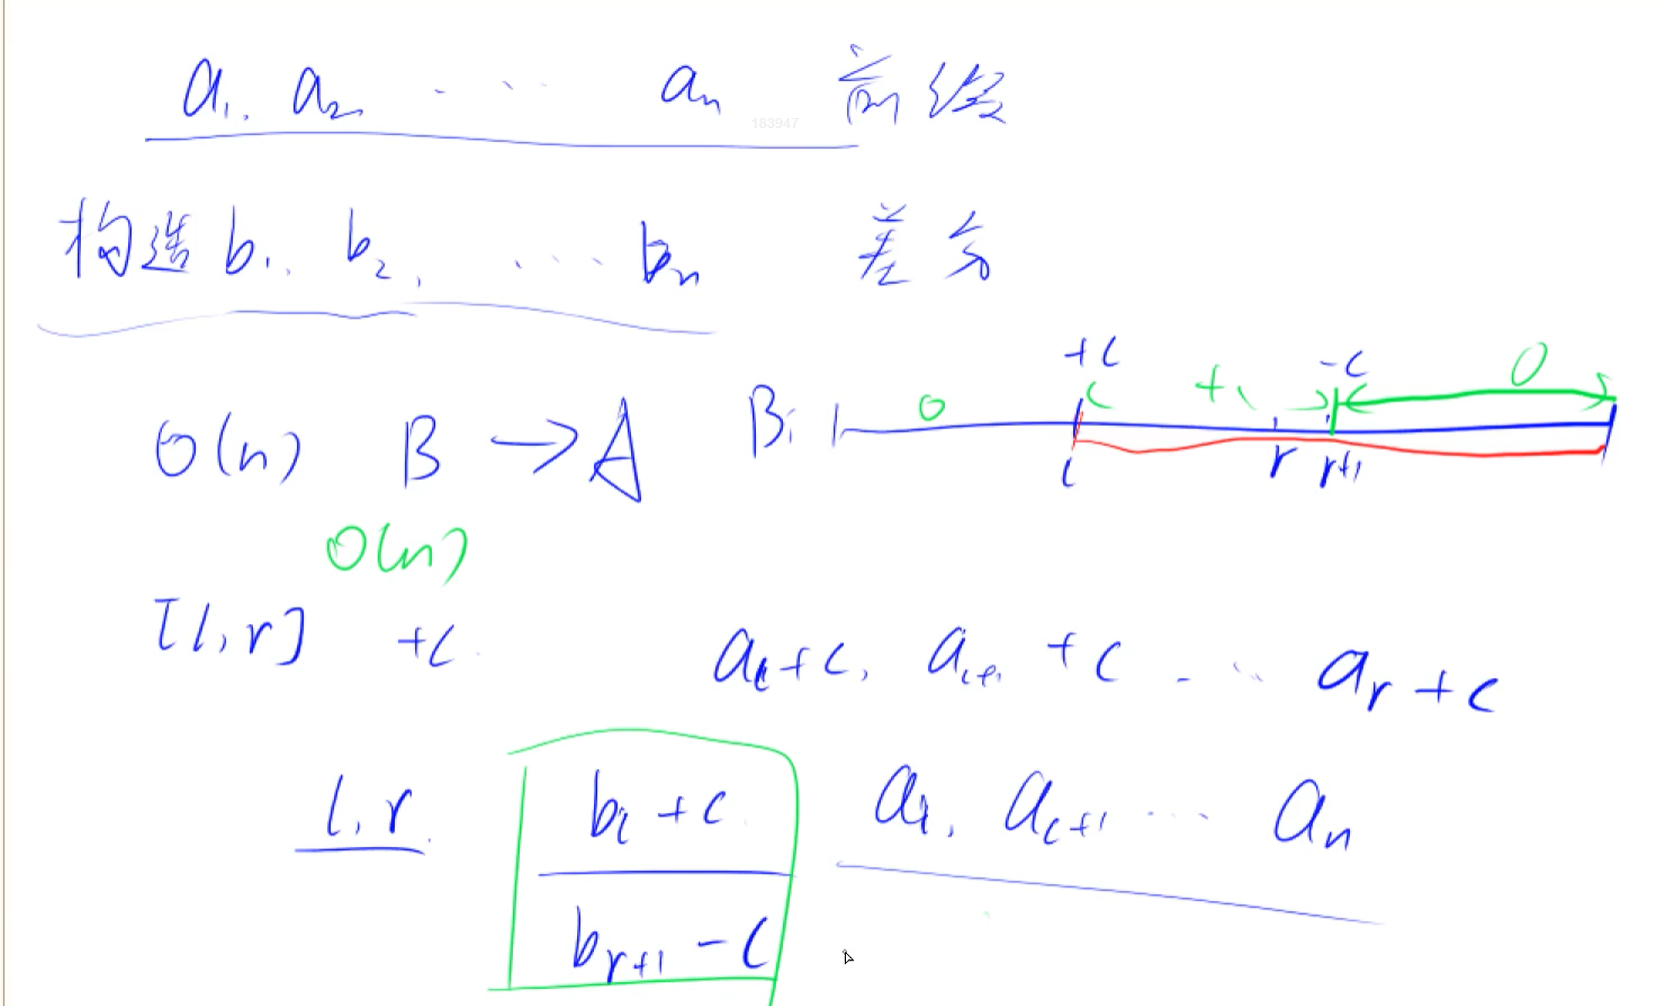 a₁, a₂ ..... aₙ 前缀
183947
构造 b₁, b₂, .... bₙ 差分
+c -c
0 c +c 0
O(n) B → A B:
l r r+1
O(n)
[l,r] +c aₗ+c, aₗ₊₁+c ... aᵣ+c
l,r bₗ+c aₗ, aₗ₊₁ ... aₙ
bᵣ₊₁-c